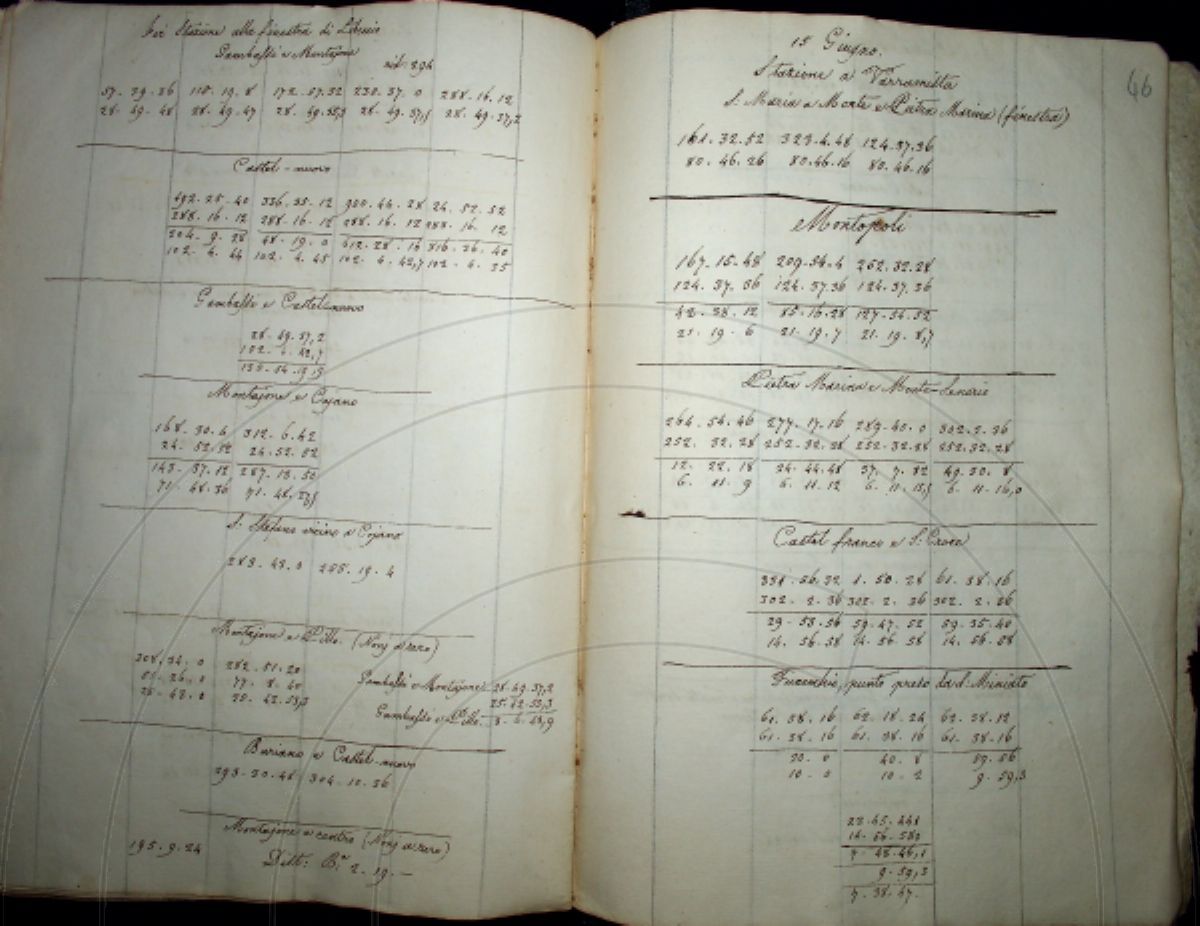 Stazione alla finestra di
Gambassi e Montajone
57. 39. 36 115. 19. 8 172. 57. 32 230. 37. 0 288. 16. 12
28. 49. 48 28. 49. 47 28. 49. 28. 49. 37,5 28. 49. 37,2
Castel-nuovo
492. 25. 40 336. 35. 12 900. 44. 28 24. 52. 52
288. 16. 12 288. 16. 12 288. 16. 12 288. 16. 12
204. 9. 28 48. 19. 0 612. 28. 16 816. 36. 40
102. 4. 44 102. 4. 45 102. 4. 42,7 102. 4. 35
Gambassi e Castel-nuovo
28. 49. 37,2
102. 4. 42,7
130. 54. 19,9
Montajone e Cojano
168. 30. 4 312. 6. 42
24. 52. 52 24. 52. 52
143. 37. 12 287. 13. 50
71. 48. 36 71. 48. 27,5
S. Stefano vicino a Cojano
283. 43. 0 285. 19. 4
Montajone e Pillo. (Nonj a zero)
308. 34. 0 282. 51. 20
51. 26. 0 77. 8. 40
25. 43. 0 25. 42. 53,3
Gambassi e Montajone 28. 49. 37,2
25. 42. 53,3
Gambassi e Pillo. 3. 6. 43,9
Buriano e Castel-nuovo
293. 20. 48 304. 10. 36
Montajone e centro (Nonj a zero)
195. 9. 24
2. 19. —
46
15 Giugno.
Stazione a Varramista
S. Maria a Monte e Pietra Marina (finestra)
161. 32. 52 323. 4. 48 124. 37. 36
80. 46. 26 80. 46. 16 80. 46. 16
Montopoli
167. 15. 48 209. 54. 4 252. 32. 28
124. 37. 36 124. 37. 36 124. 37. 36
42. 38. 12 85. 16. 28 127. 54. 52
21. 19. 6 21. 19. 7 21. 19. 8,7
Pietra Marina e Monte-Senario
264. 54. 46 277. 17. 16 289. 40. 0 302. 2. 36
252. 32. 28 252. 32. 28 252. 32. 28 252. 32. 28
12. 22. 18 24. 44. 48 37. 7. 32 49. 30. 8
6. 11. 9 6. 11. 12 6. 11. 15,5 6. 11. 16,0
Castel franco e S. Croce
331. 56. 32 1. 50. 28 61. 38. 16
302. 2. 36 302. 2. 36 302. 2. 36
29. 53. 56 59. 47. 52 59. 35. 40
14. 56. 58 14. 56. 58 14. 56.
Fucecchio, punto preso da S. Miniato
61. 38. 16 62. 18. 24 62. 38. 12
61. 38. 16 61. 38. 16 61. 38. 16
20. 0 40. 8 59. 56
10. 0 10. 2 9. 59,3
22. 45.
14. 56.
7. 48. 46,1
9. 59,3
7. 38. 47.